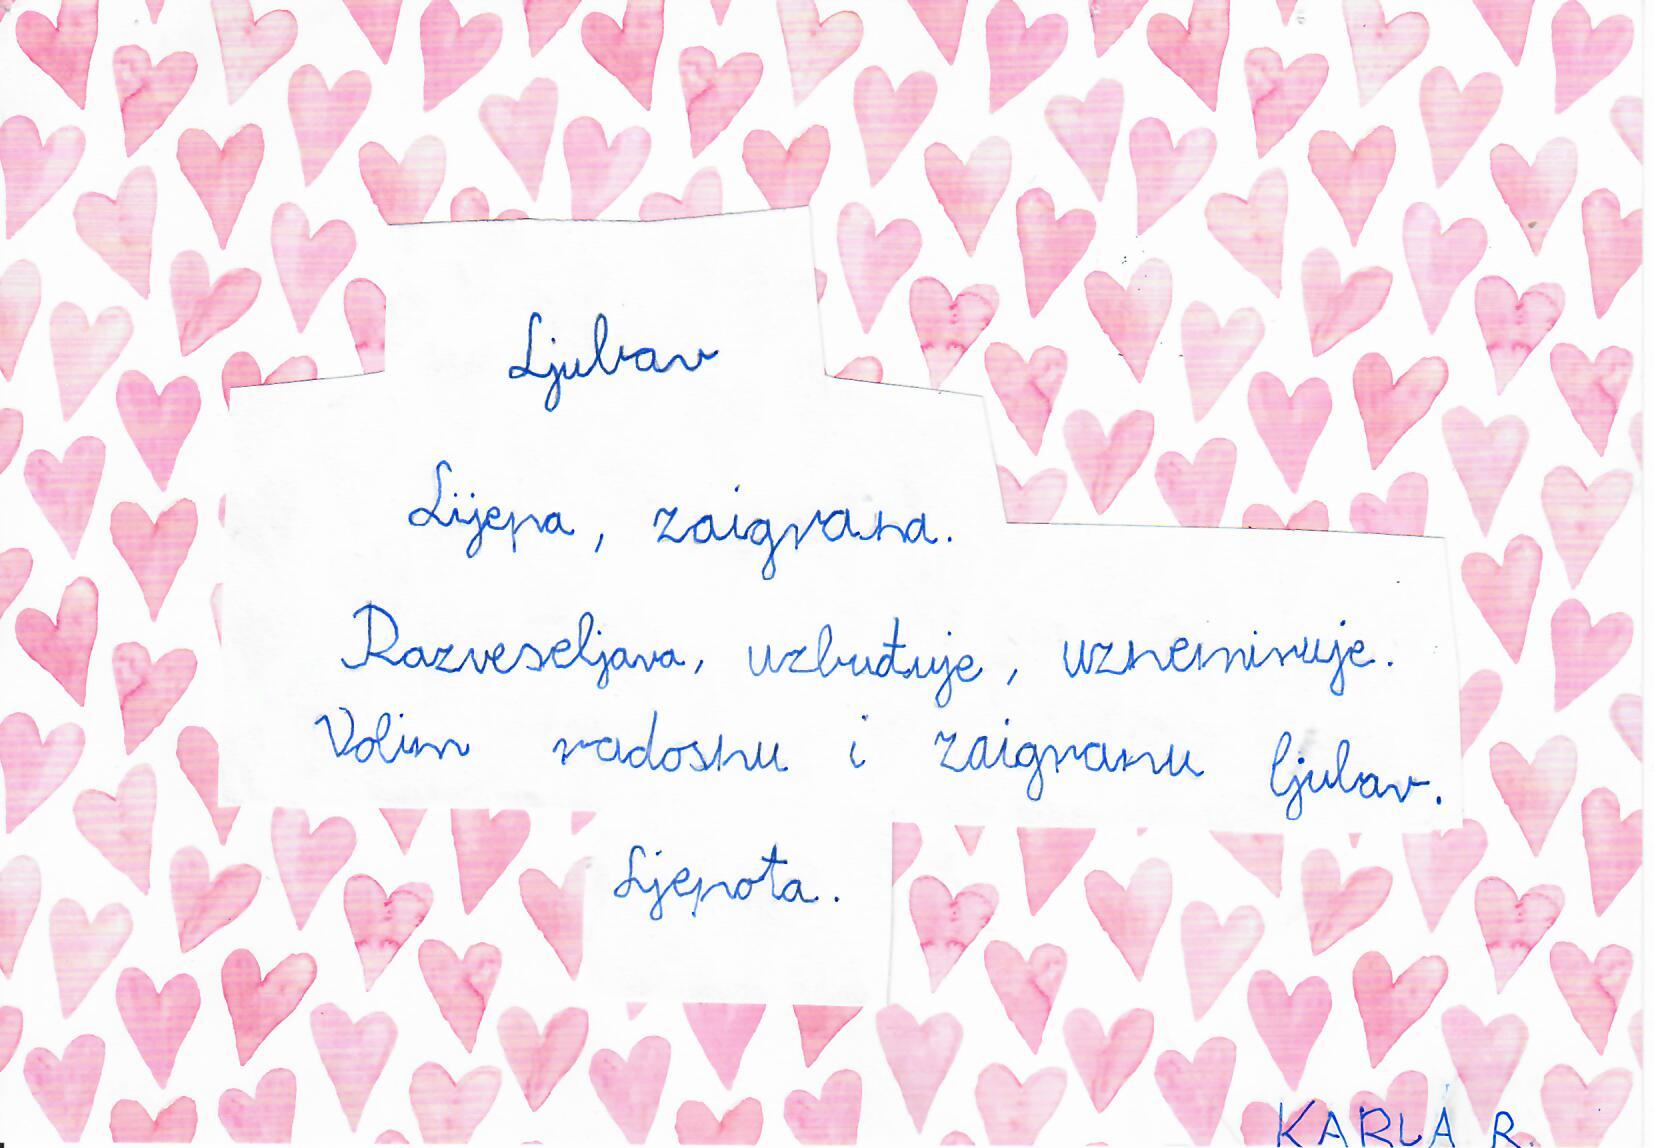 Ljubav
Lijepa, zaigrana.
Razveseljava, uzbuđuje, uznemiruje.
Volim radosnu i zaigranu ljubav.
Ljepota.
KARLA R.